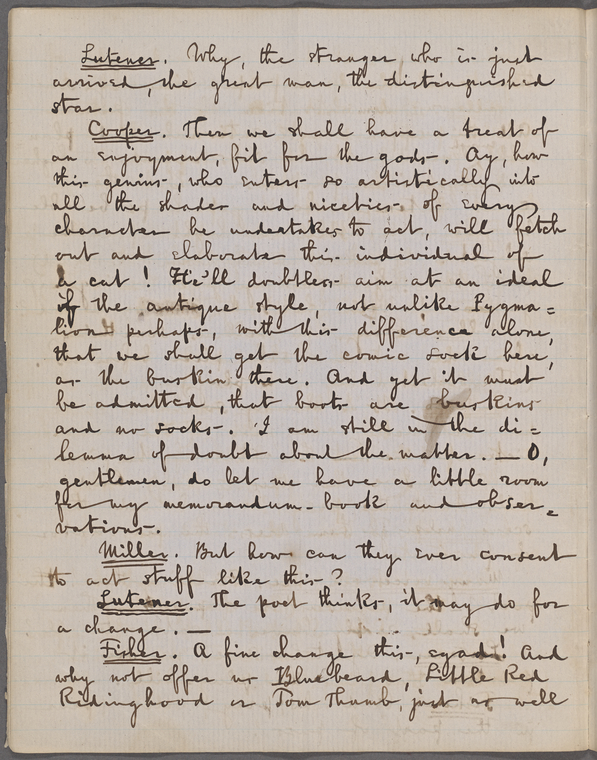 Lutener. Why, the stranger who is just
arrived, the great man, the distinguished
star.
Cooper. Then we shall have a treat of
an enjoyment, fit for the gods. Ay, how
this genius, who enters so artistically into
all the shades and niceties of every
character he undertakes to act, will fetch
out and elaborate this individual of
a cat! He'll doubtless aim at an ideal
if the antique style, not unlike Pygma=
lion perhaps, with this difference alone,
that we shall get the comic sock here,
as the buskin there. And yet it must
be admitted, that boots are buskins
and no socks. I am still in the di=
lemma of doubt about the matter. — O,
gentlemen, do let me have a little room
for my memorandum-book and obser=
vations.
Miller. But how can they ever consent
to act stuff like this?
Lutener. The poet thinks, it may do for
a change. —
Fisher. A fine change this, egad! And
why not offer us Bluebeard, Little Red
Ridinghood or Tom Thumb, just as well